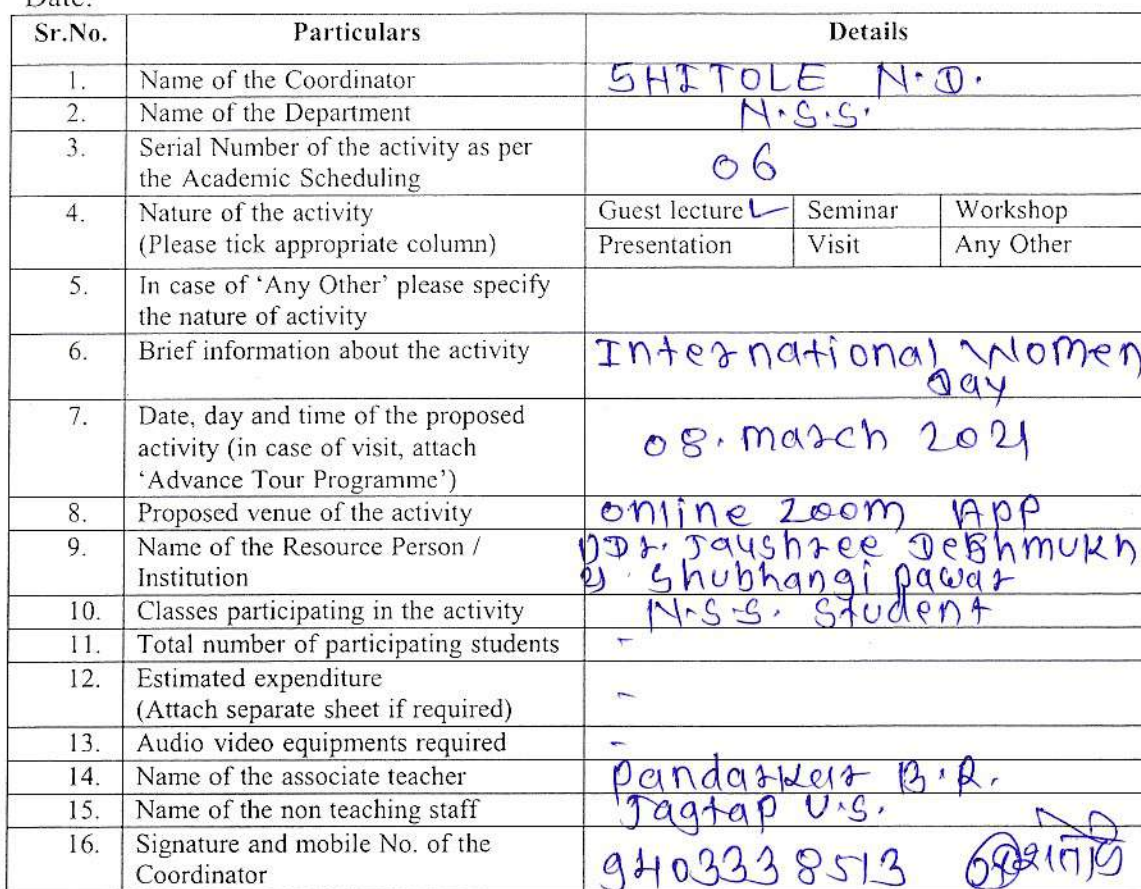 Date:
Sr.No. Particulars Details
1. Name of the Coordinator SHITOLE N.D.
2. Name of the Department N.S.S.
3. Serial Number of the activity as per
the Academic Scheduling 06
4. Nature of the activity Guest lecture ✓ Seminar Workshop
(Please tick appropriate column) Presentation Visit Any Other
5. In case of 'Any Other' please specify
the nature of activity
6. Brief information about the activity International Women
Day
7. Date, day and time of the proposed
activity (in case of visit, attach 08. march 2021
'Advance Tour Programme')
8. Proposed venue of the activity online zoom App
9. Name of the Resource Person / 1) Dr. Jayshree Deshmukh
Institution 2) Shubhangi Pawar
10. Classes participating in the activity N.S.S. Student
11. Total number of participating students -
12. Estimated expenditure
(Attach separate sheet if required) -
13. Audio video equipments required -
14. Name of the associate teacher Pandarkar B.R.
15. Name of the non teaching staff Jagtap U.S.
16. Signature and mobile No. of the
Coordinator 9403338513